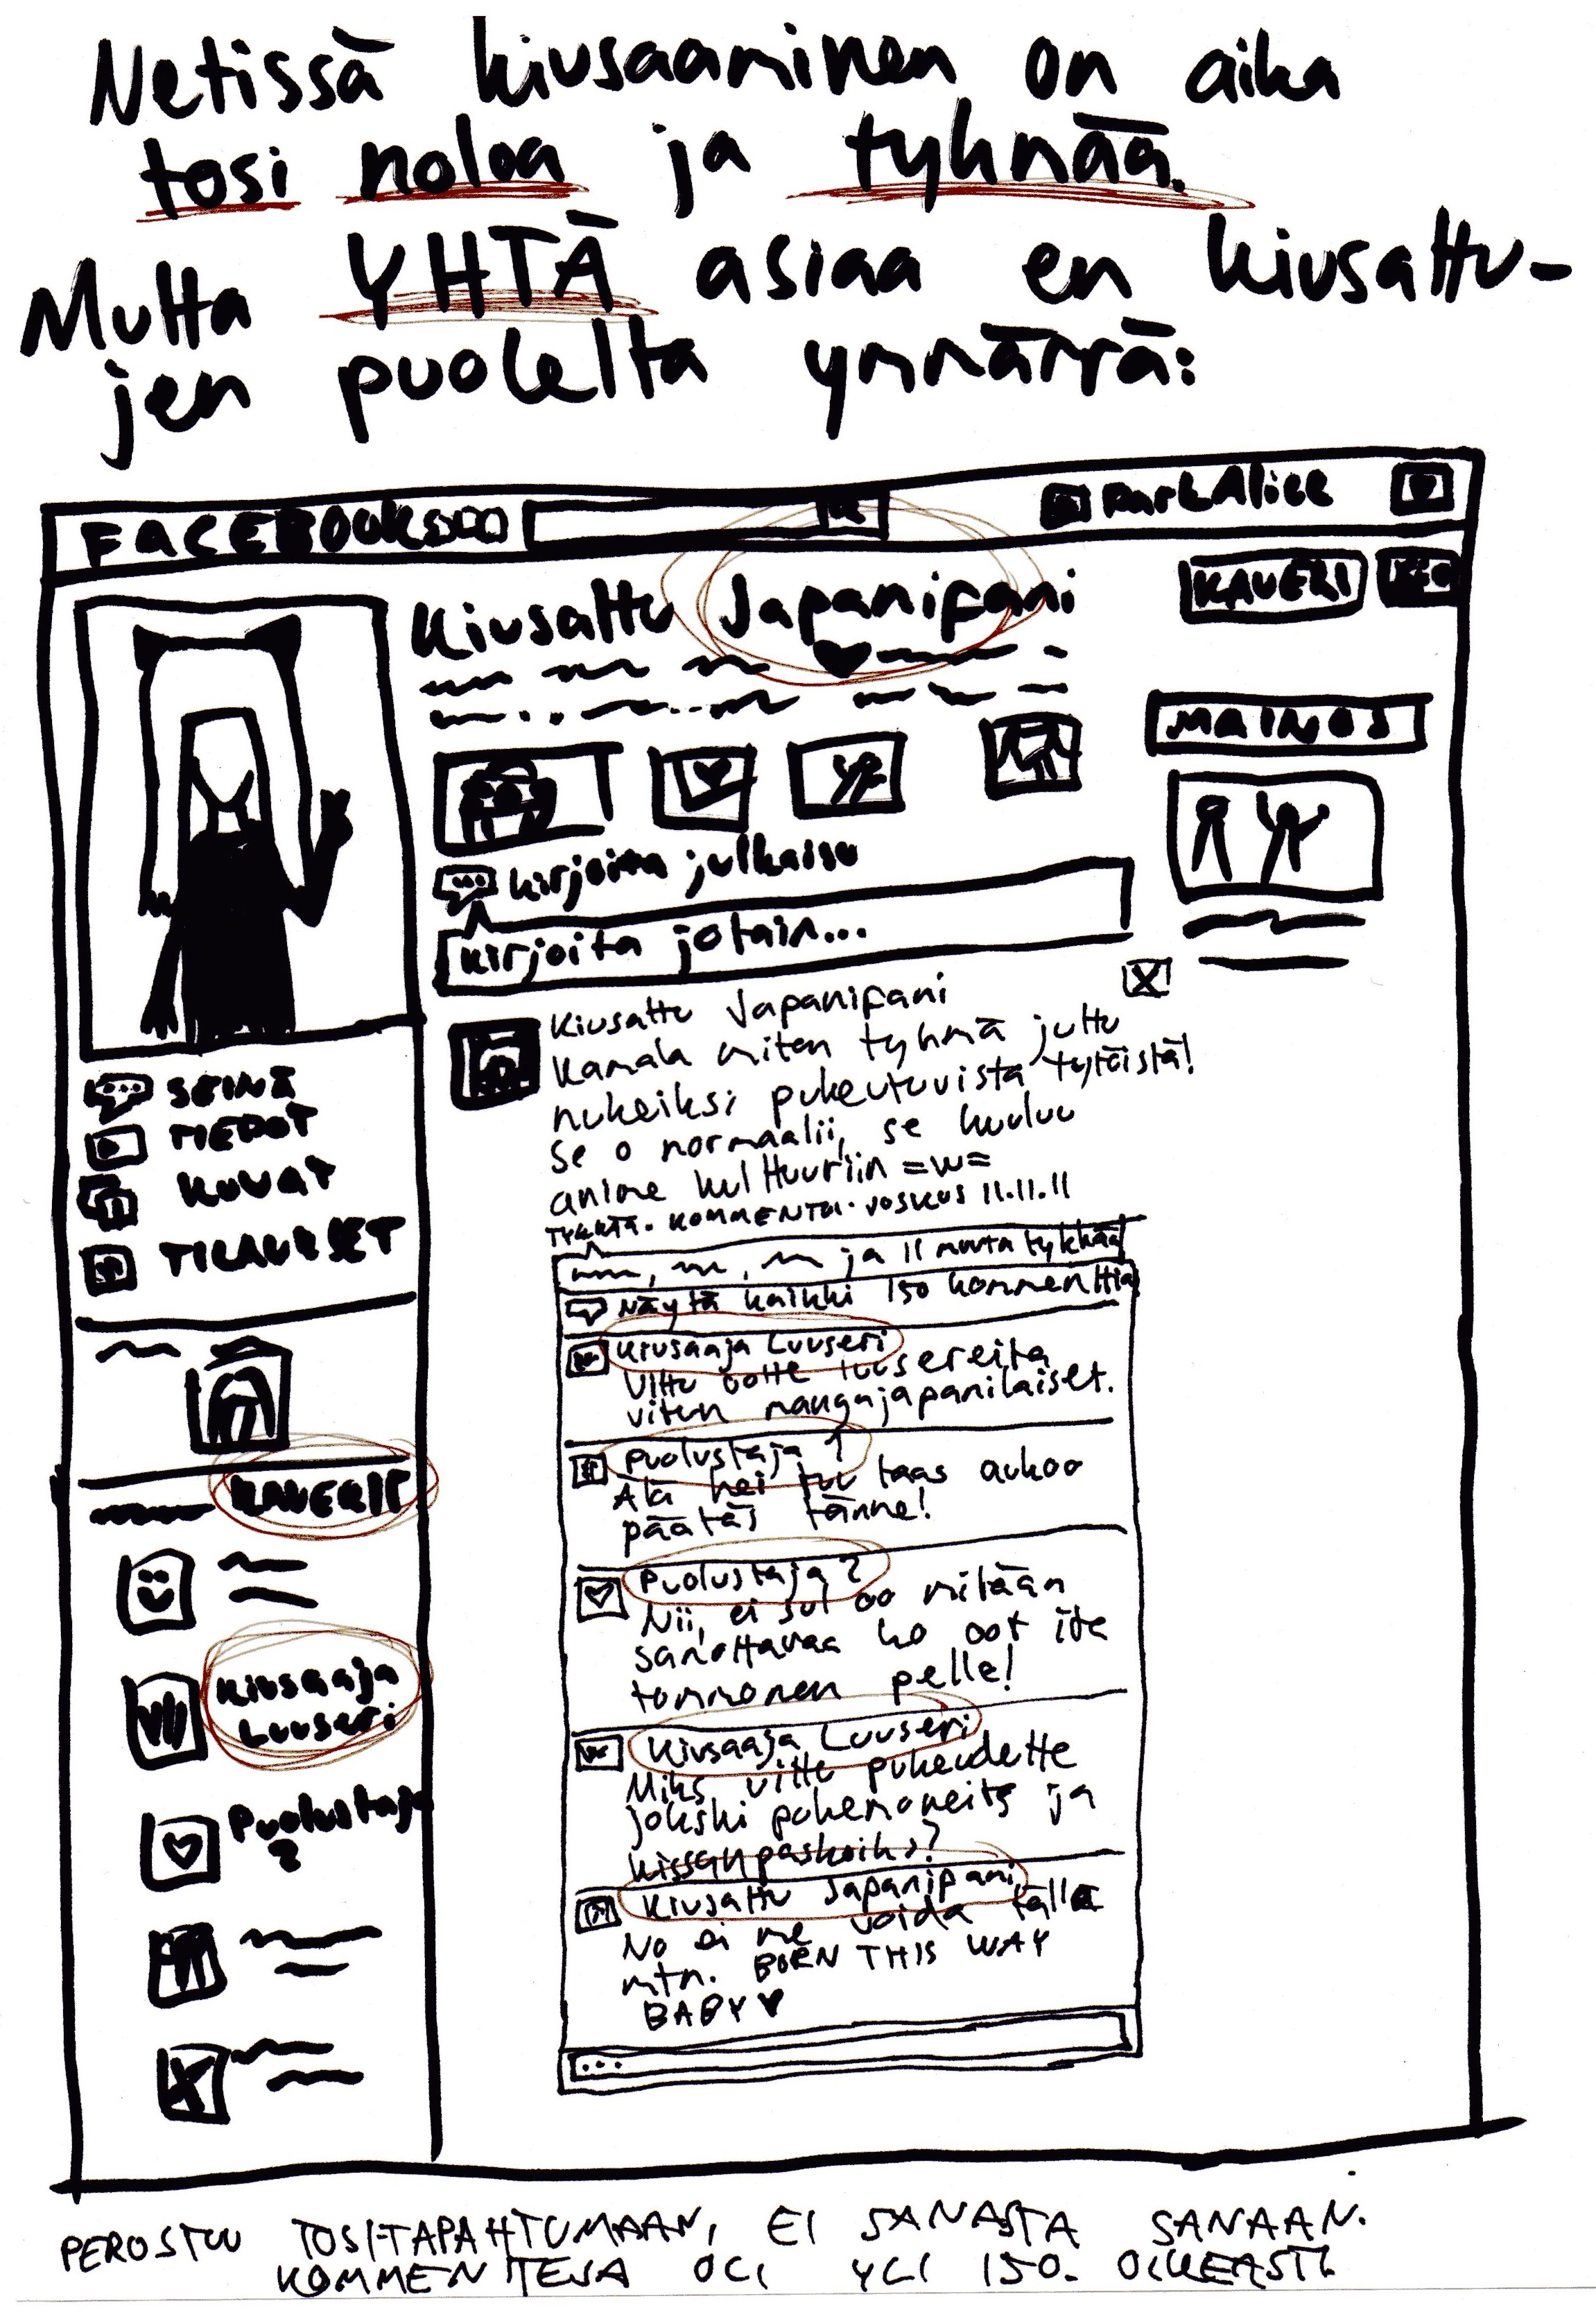 Netissä kiusaaminen on aika
tosi noloa ja tyhmää.
Mutta YHTÄ asiaa en kiusattu-
jen puolelta ymmärrä:
FACEBOOK
DarkAlice
Kiusattu Japanifani
KAVERI
MAINOS
kirjoita julkaisu
kirjoita jotain...
X
Kiusattu Japanifani
Kamala miten tyhmä juttu
nukeiksi pukeutuvista tytöistä!
Se o normaalii, se kuuluu
anime kulttuuriin =w=
TYKKÄÄ. KOMMENTOI. JOSKUS 11.11.11
ja 11 muuta tykkää
Näytä kaikki 150 kommenttia
Kiusaaja Luuseri
Vittu ootte luusereita
vitun mangajapanilaiset.
Puolustaja 1
Älä hei tuu taas aukoo
päätäs tänne!
Puolustaja 2
Nii, ei sul oo mitään
sanottavaa ko oot ite
tommonen pelle!
Kiusaaja Luuseri
Miks vittu pukeudette
jokski pokemoneiks ja
kissanpaskoiks?
Kiusattu Japanifani
No ei me voida tälle
mtn. BORN THIS WAY
BABY ♥
...
SEINÄ
TIEDOT
KUVAT
TILAUKSET
KAVERIT
Kiusaaja
Luuseri
Puolustaja
2
PERUSTUU TOSITAPAHTUMAAN, EI SANASTA SANAAN.
KOMMENTEJA OLI YLI 150. OIKEASTI.